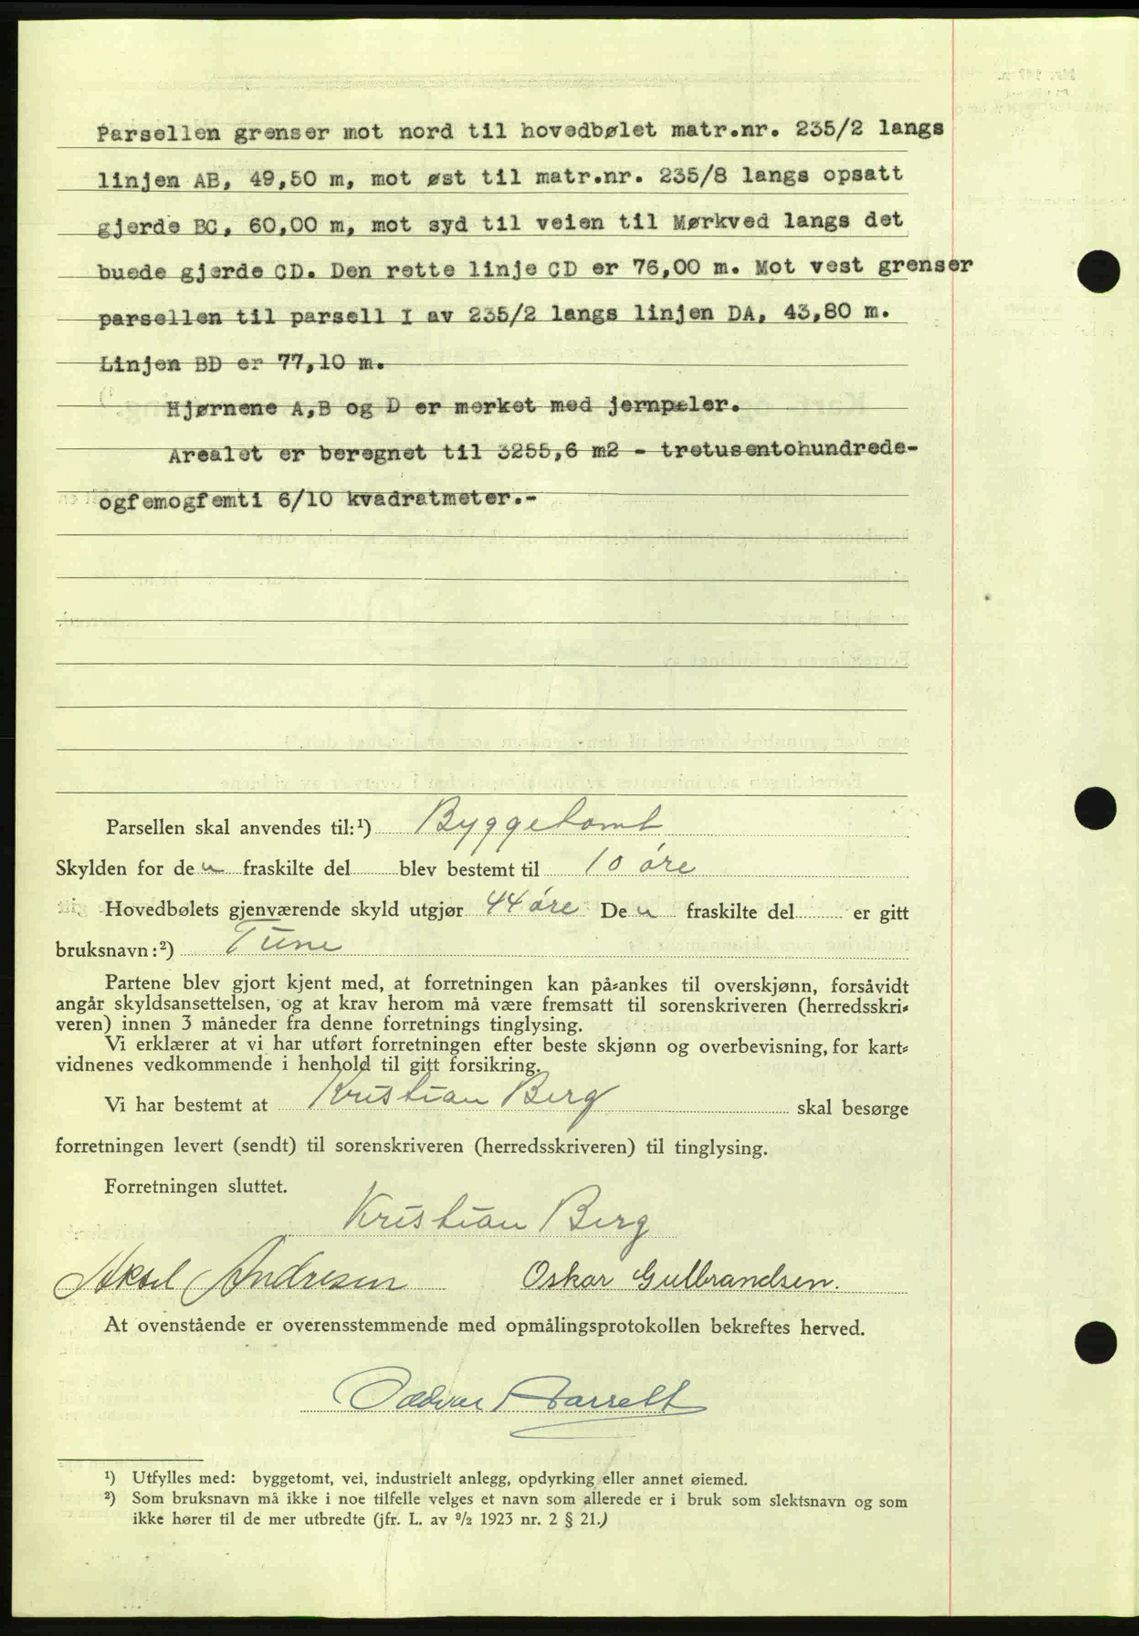 Parsellen grenser mot nord til hovedbølet matr.nr. 235/2 langs
linjen AB, 49,50 m, mot øst til matr.nr. 235/8 langs opsatt
gjerde BC, 60,00 m, mot syd til veien til Mørkved langs det
buede gjerde CD. Den rette linje CD er 76,00 m. Mot vest grenser
parsellen til parsell I av 235/2 langs linjen DA, 43,80 m.
Linjen BD er 77,10 m.
Hjørnene A,B og D er merket med jernpæler.
Arealet er beregnet til 3255,6 m2 - tretusentohundrede-
ogfemogfemti 6/10 kvadratmeter.-
Parsellen skal anvendes til:¹) Byggetomt
Skylden for den fraskilte del blev bestemt til 10 øre
Hovedbølets gjenværende skyld utgjør 44 øre Den fraskilte del er gitt
bruksnavn:²) Tune
Partene blev gjort kjent med, at forretningen kan på-ankes til overskjønn, forsåvidt
angår skyldsansettelsen, og at krav herom må være fremsatt til sorenskriveren (herredsskri-
veren) innen 3 måneder fra denne forretnings tinglysing.
Vi erklærer at vi har utført forretningen efter beste skjønn og overbevisning, for kart-
vidnenes vedkommende i henhold til gitt forsikring.
Vi har bestemt at Kristian Berg skal besørge
forretningen levert (sendt) til sorenskriveren (herredsskriveren) til tinglysing.
Forretningen sluttet.
Kristian Berg
Aksel Andresen Oskar Gulbrandsen.
At ovenstående er overensstemmende med opmålingsprotokollen bekreftes herved.
¹) Utfylles med: byggetomt, vei, industrielt anlegg, opdyrking eller annet øiemed.
²) Som bruksnavn må ikke i noe tilfelle velges et navn som allerede er i bruk som slektsnavn og som
ikke hører til de mer utbredte (jfr. L. av 9/2 1923 nr. 2 § 21.)